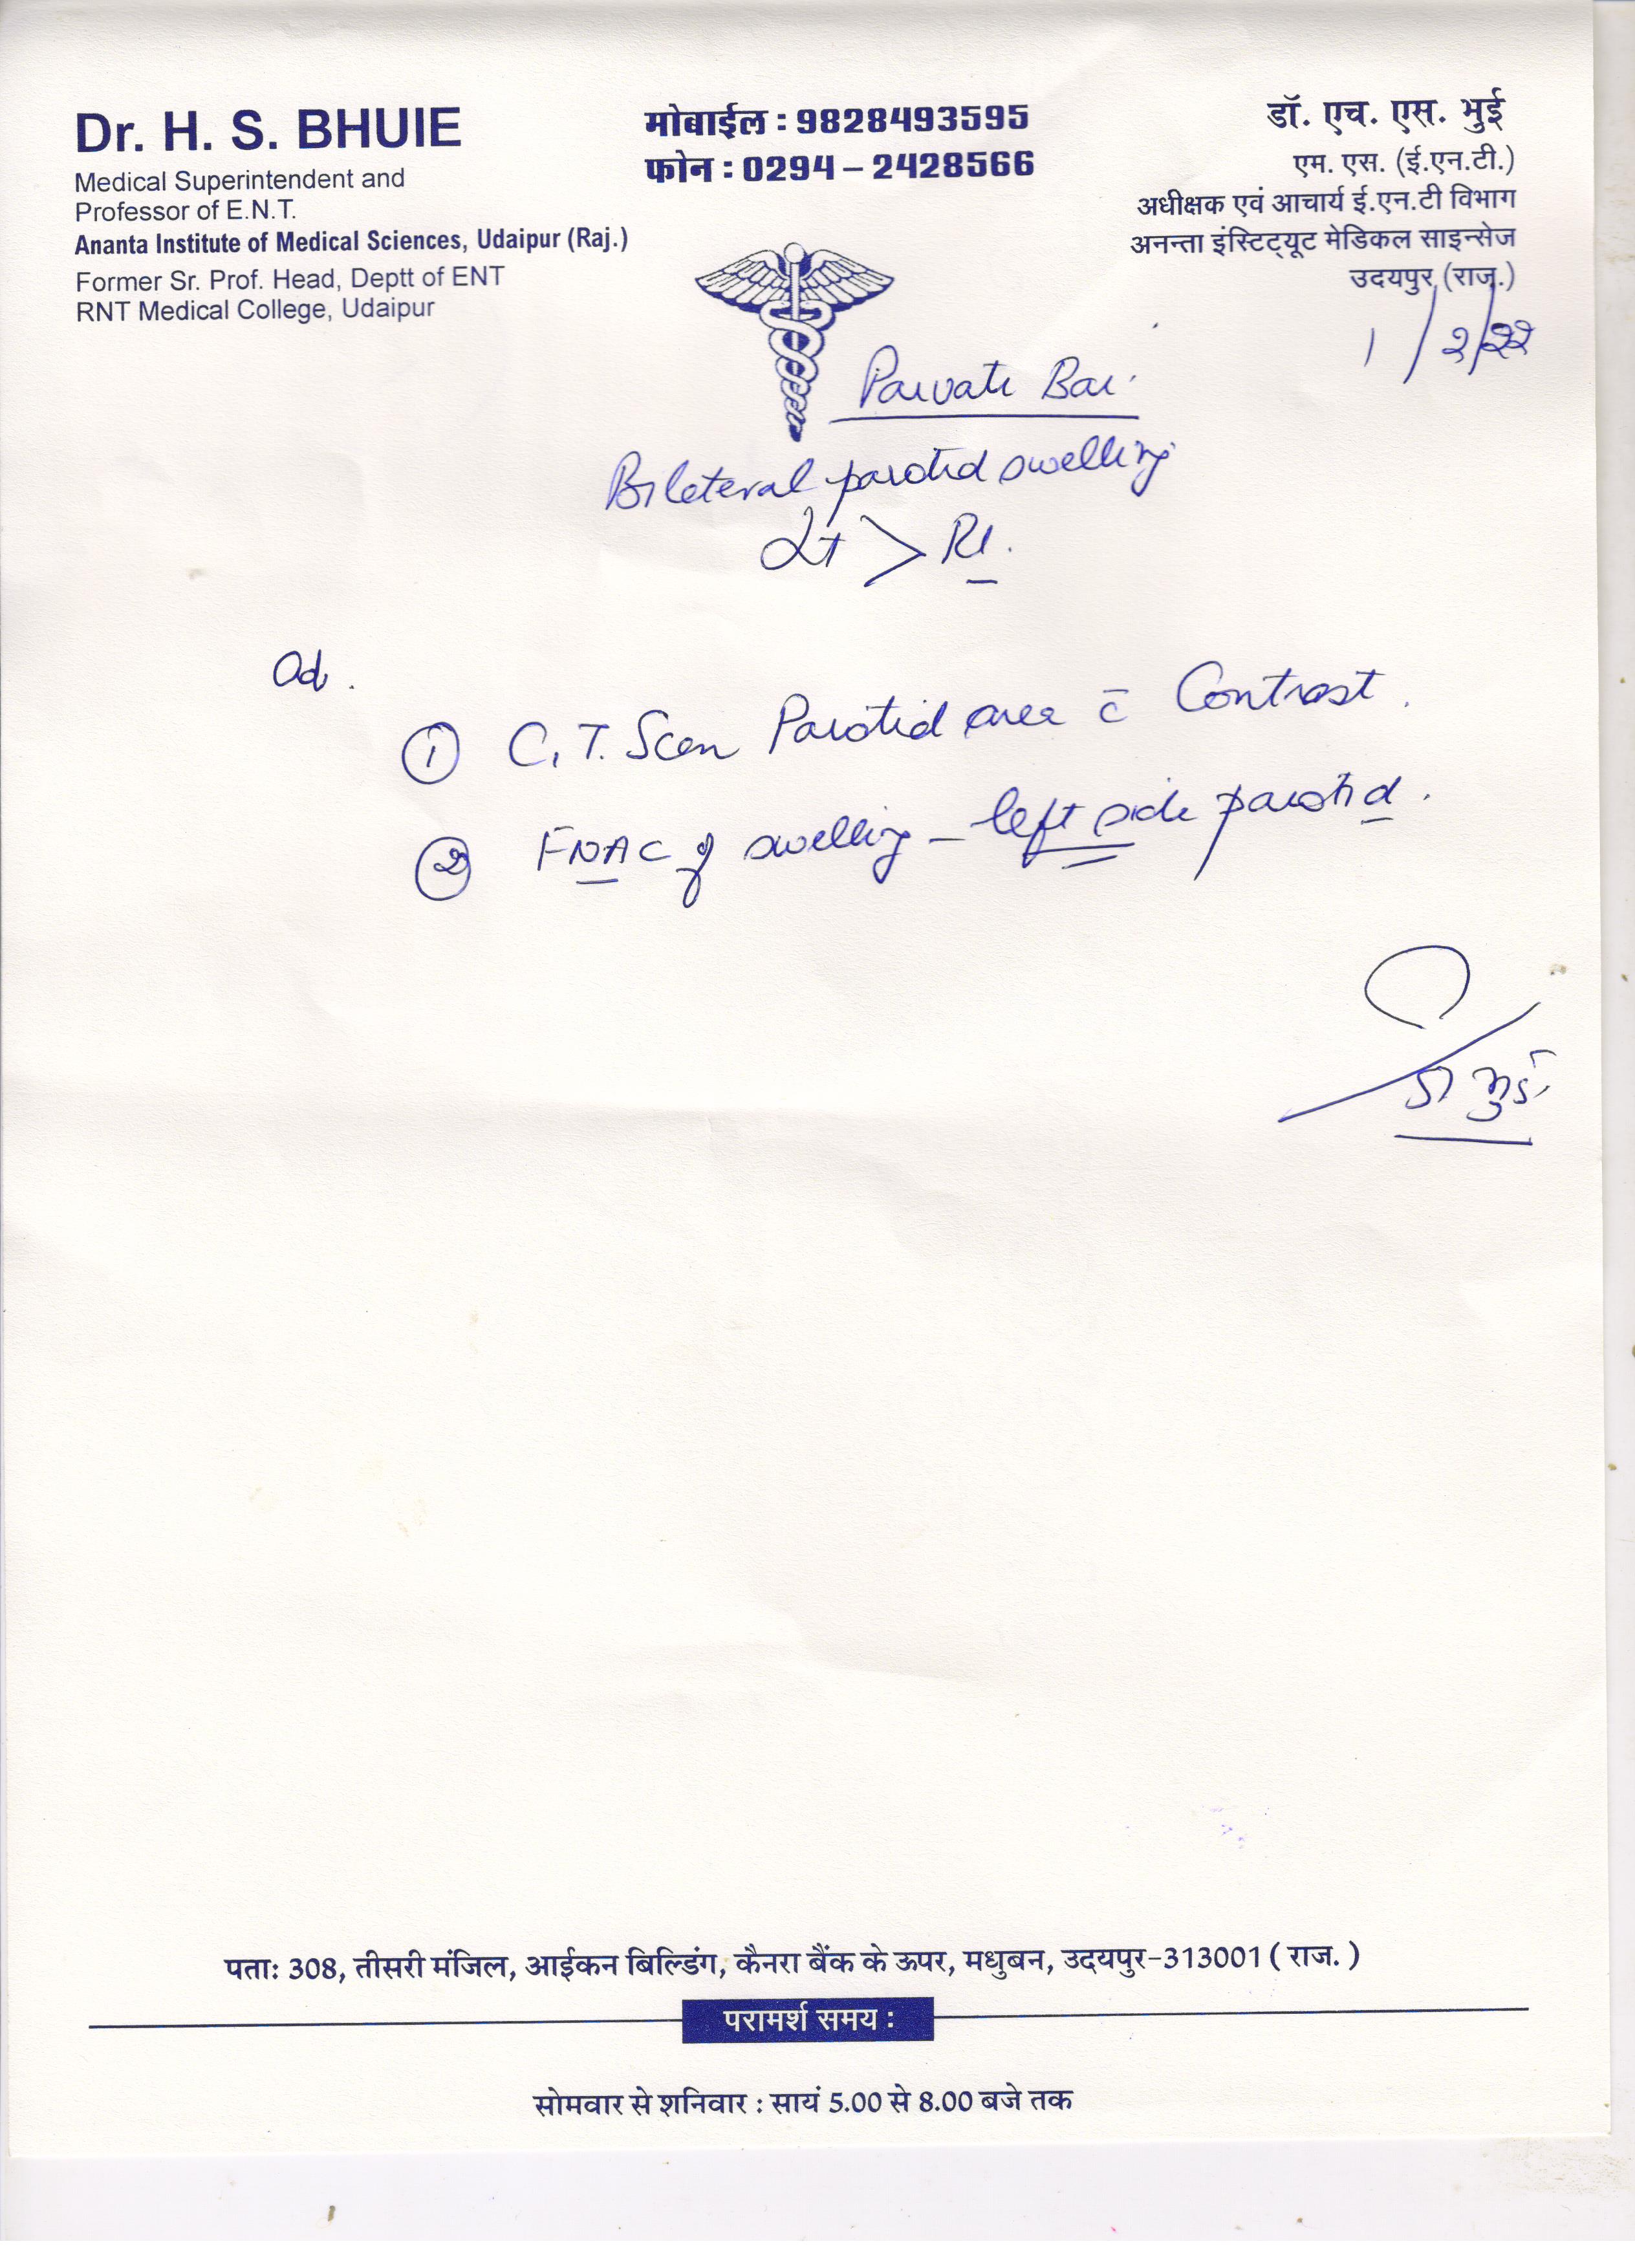 Dr. H. S. BHUIE
Medical Superintendent and
Professor of E.N.T.
Ananta Institute of Medical Sciences, Udaipur (Raj.)
Former Sr. Prof. Head, Deptt of ENT
RNT Medical College, Udaipur
मोबाईल : 9828493595
फोन : 0294 – 2428566
डॉ. एच. एस. भुई
एम. एस. (ई.एन.टी.)
अधीक्षक एवं आचार्य ई.एन.टी विभाग
अनन्ता इंस्टिट्यूट मेडिकल साइन्सेज
उदयपुर (राज.)
1/2/22
Parvati Bai
Bilateral parotid swelling
Lt > Rt.
Ad.
① C.T. Scan Parotid area c̄ Contrast.
② FNAC of swelling – left side parotid.
डा भुई
पताः 308, तीसरी मंजिल, आईकन बिल्डिंग, कैनरा बैंक के ऊपर, मधुबन, उदयपुर-313001 ( राज. )
परामर्श समय :
सोमवार से शनिवार : सायं 5.00 से 8.00 बजे तक